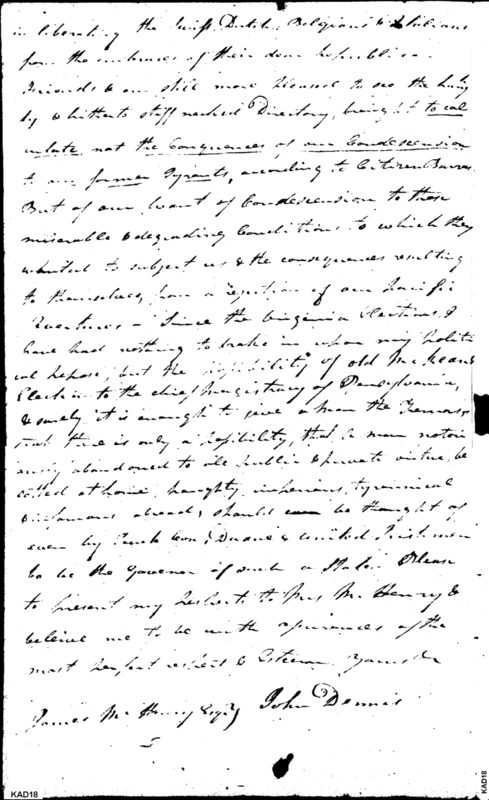 in liberating the Swiss, Dutch, Belgians & Italians
from the embraces of their dear republican
Friends & am still more pleased to see the haugh
ty & hitherto stiff necked Directory, brought to cal
culate, not the Consequences of our Condescension
to our former Tyrants, according to Citizen Barras
But of our want of Condescension to those
miserable & degrading Conditions to which they
wanted to subject us & the consequences resulting
to themselves, from a rejection of our Pacific
Overtures – Since the Virginia Elections, I
have had nothing to brake in upon my politi
cal repose, but the possibility of old McKean's
Election to the chief Magistracy of Pensylvania,
& surely it is enough to give a man the
that there is only a possibility, that a man notori
ously abandoned to all public & private virtue, be
at home, haughty, imperious, tyrannical
& infamous abroad, should even be thought of
even by Duane & United Irishmen
to be the Governor of such a State. Please
to present my respects to Mrs McHenry &
believe me to be with assurances of the
most perfect respect & Esteem Yours &c
James McHenry Esqr John Dennis
KAD18
KAD18